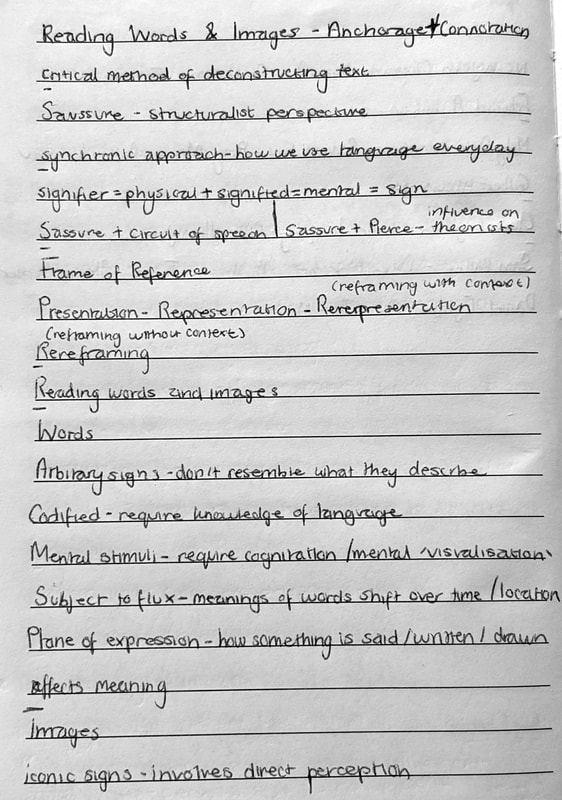 Reading Words & Images - Anchorage + Connotation
critical method of deconstructing text
Saussure - structuralist perspective
synchronic approach - how we use language everyday
signifier = physical + signified = mental = sign
influence on
Sassure + circuit of speech | Sassure + Pierce - theorists
Frame of Reference
(reframing with context)
Presentation - Representation - Rerepresentation
(reframing without context)
Rereframing
Reading words and images
Words
Arbitrary signs - don't resemble what they describe
Codified - require knowledge of language
Mental stimuli - require cognitation / mental 'visualisation'
Subject to flux - meanings of words shift over time / location
Plane of expression - how something is said / written / drawn
affects meaning
Images
iconic signs - involves direct perception